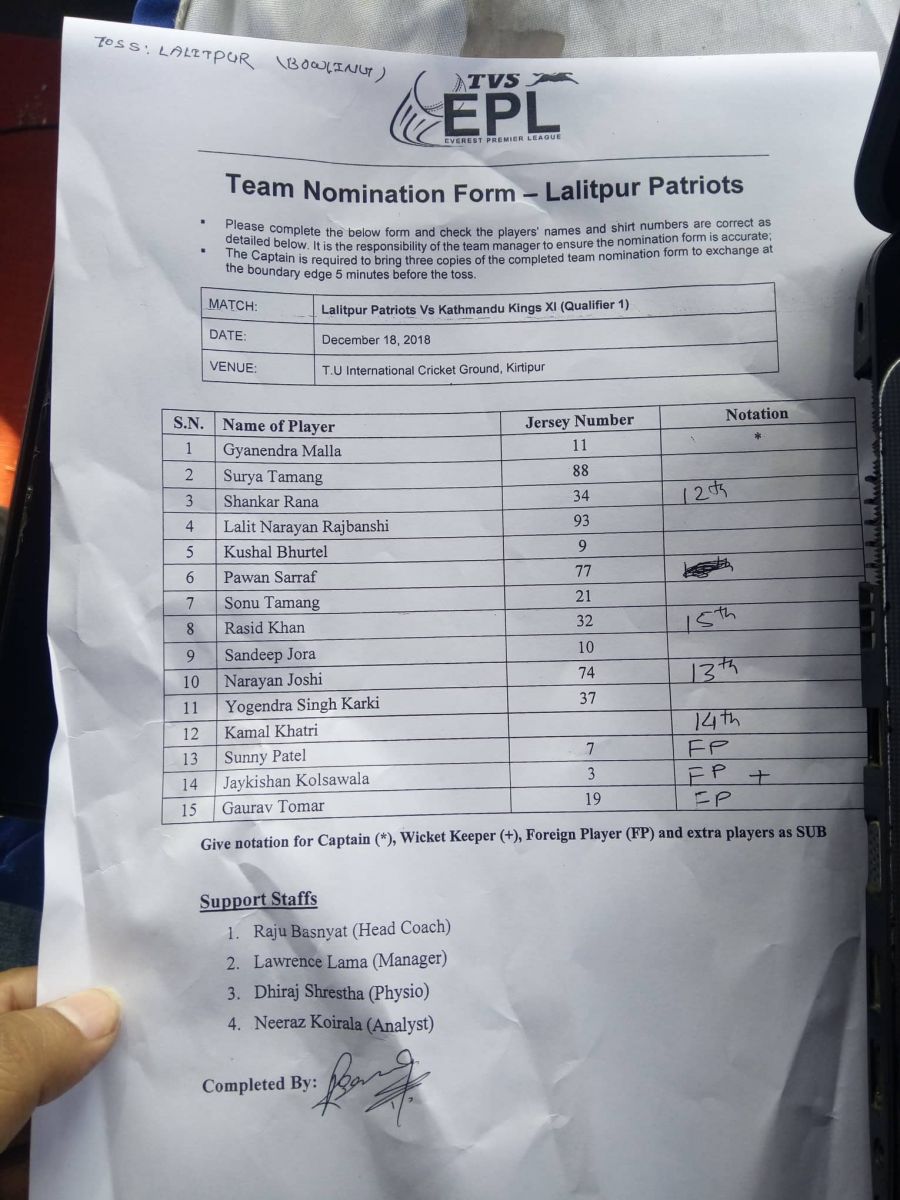 TOSS: LALITPUR (BOWLING)
TVS
EPL
EVEREST PREMIER LEAGUE
Team Nomination Form – Lalitpur Patriots
▪ Please complete the below form and check the players' names and shirt numbers are correct as
detailed below. It is the responsibility of the team manager to ensure the nomination form is accurate;
▪ The Captain is required to bring three copies of the completed team nomination form to exchange at
the boundary edge 5 minutes before the toss.
MATCH: Lalitpur Patriots Vs Kathmandu Kings XI (Qualifier 1)
DATE: December 18, 2018
VENUE: T.U International Cricket Ground, Kirtipur
S.N. Name of Player Jersey Number Notation
1 Gyanendra Malla 11 *
2 Surya Tamang 88
3 Shankar Rana 34 12th
4 Lalit Narayan Rajbanshi 93
5 Kushal Bhurtel 9
6 Pawan Sarraf 77
7 Sonu Tamang 21
8 Rasid Khan 32 15th
9 Sandeep Jora 10
10 Narayan Joshi 74 13th
11 Yogendra Singh Karki 37
12 Kamal Khatri 14th
13 Sunny Patel 7 FP
14 Jaykishan Kolsawala 3 FP +
15 Gaurav Tomar 19 FP
Give notation for Captain (*), Wicket Keeper (+), Foreign Player (FP) and extra players as SUB
Support Staffs
1. Raju Basnyat (Head Coach)
2. Lawrence Lama (Manager)
3. Dhiraj Shrestha (Physio)
4. Neeraz Koirala (Analyst)
Completed By: